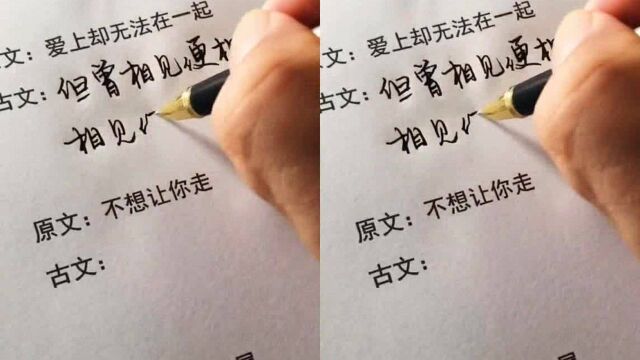 文：爱上却无法在一起
古文：但曾相见便相
相见
原文：不想让你走
古文：
文：爱上却无法在一起
古文：但曾相见便相
相见
原文：不想让你走
古文：